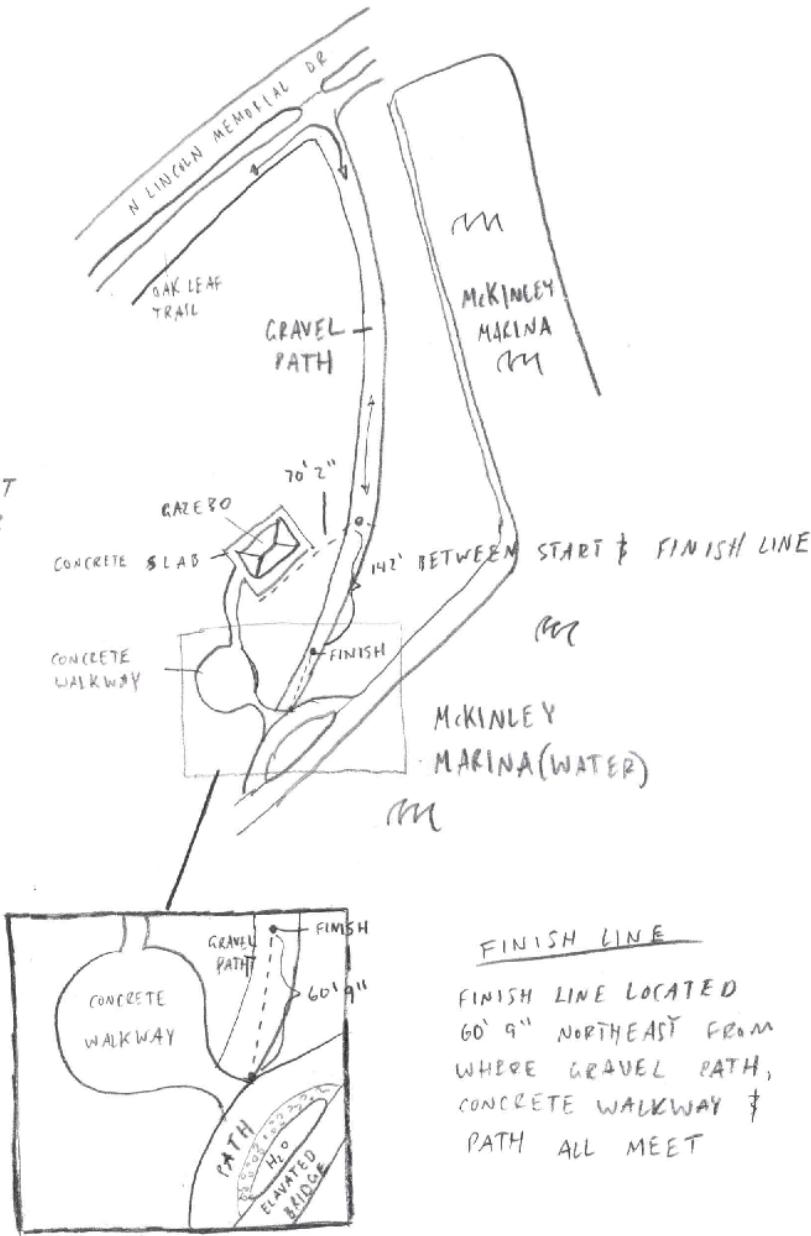 N LINCOLN MEMORIAL DR
OAK LEAF
TRAIL
GRAVEL
PATH
McKINLEY
MARINA
70' 2"
GAZEBO
CONCRETE SLAB
142' BETWEEN START & FINISH LINE
CONCRETE
WALKWAY
FINISH
McKINLEY
MARINA (WATER)
GRAVEL
PATH
FINISH
60' 9"
CONCRETE
WALKWAY
PATH
H2O
ELAVATED
BRIDGE
FINISH LINE
FINISH LINE LOCATED
60' 9" NORTHEAST FROM
WHERE GRAVEL PATH,
CONCRETE WALKWAY &
PATH ALL MEET